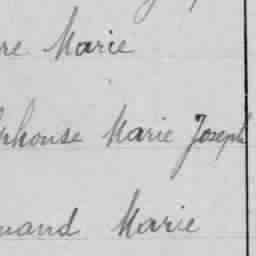 re Marie
phonse Marie Joseph
nand Marie